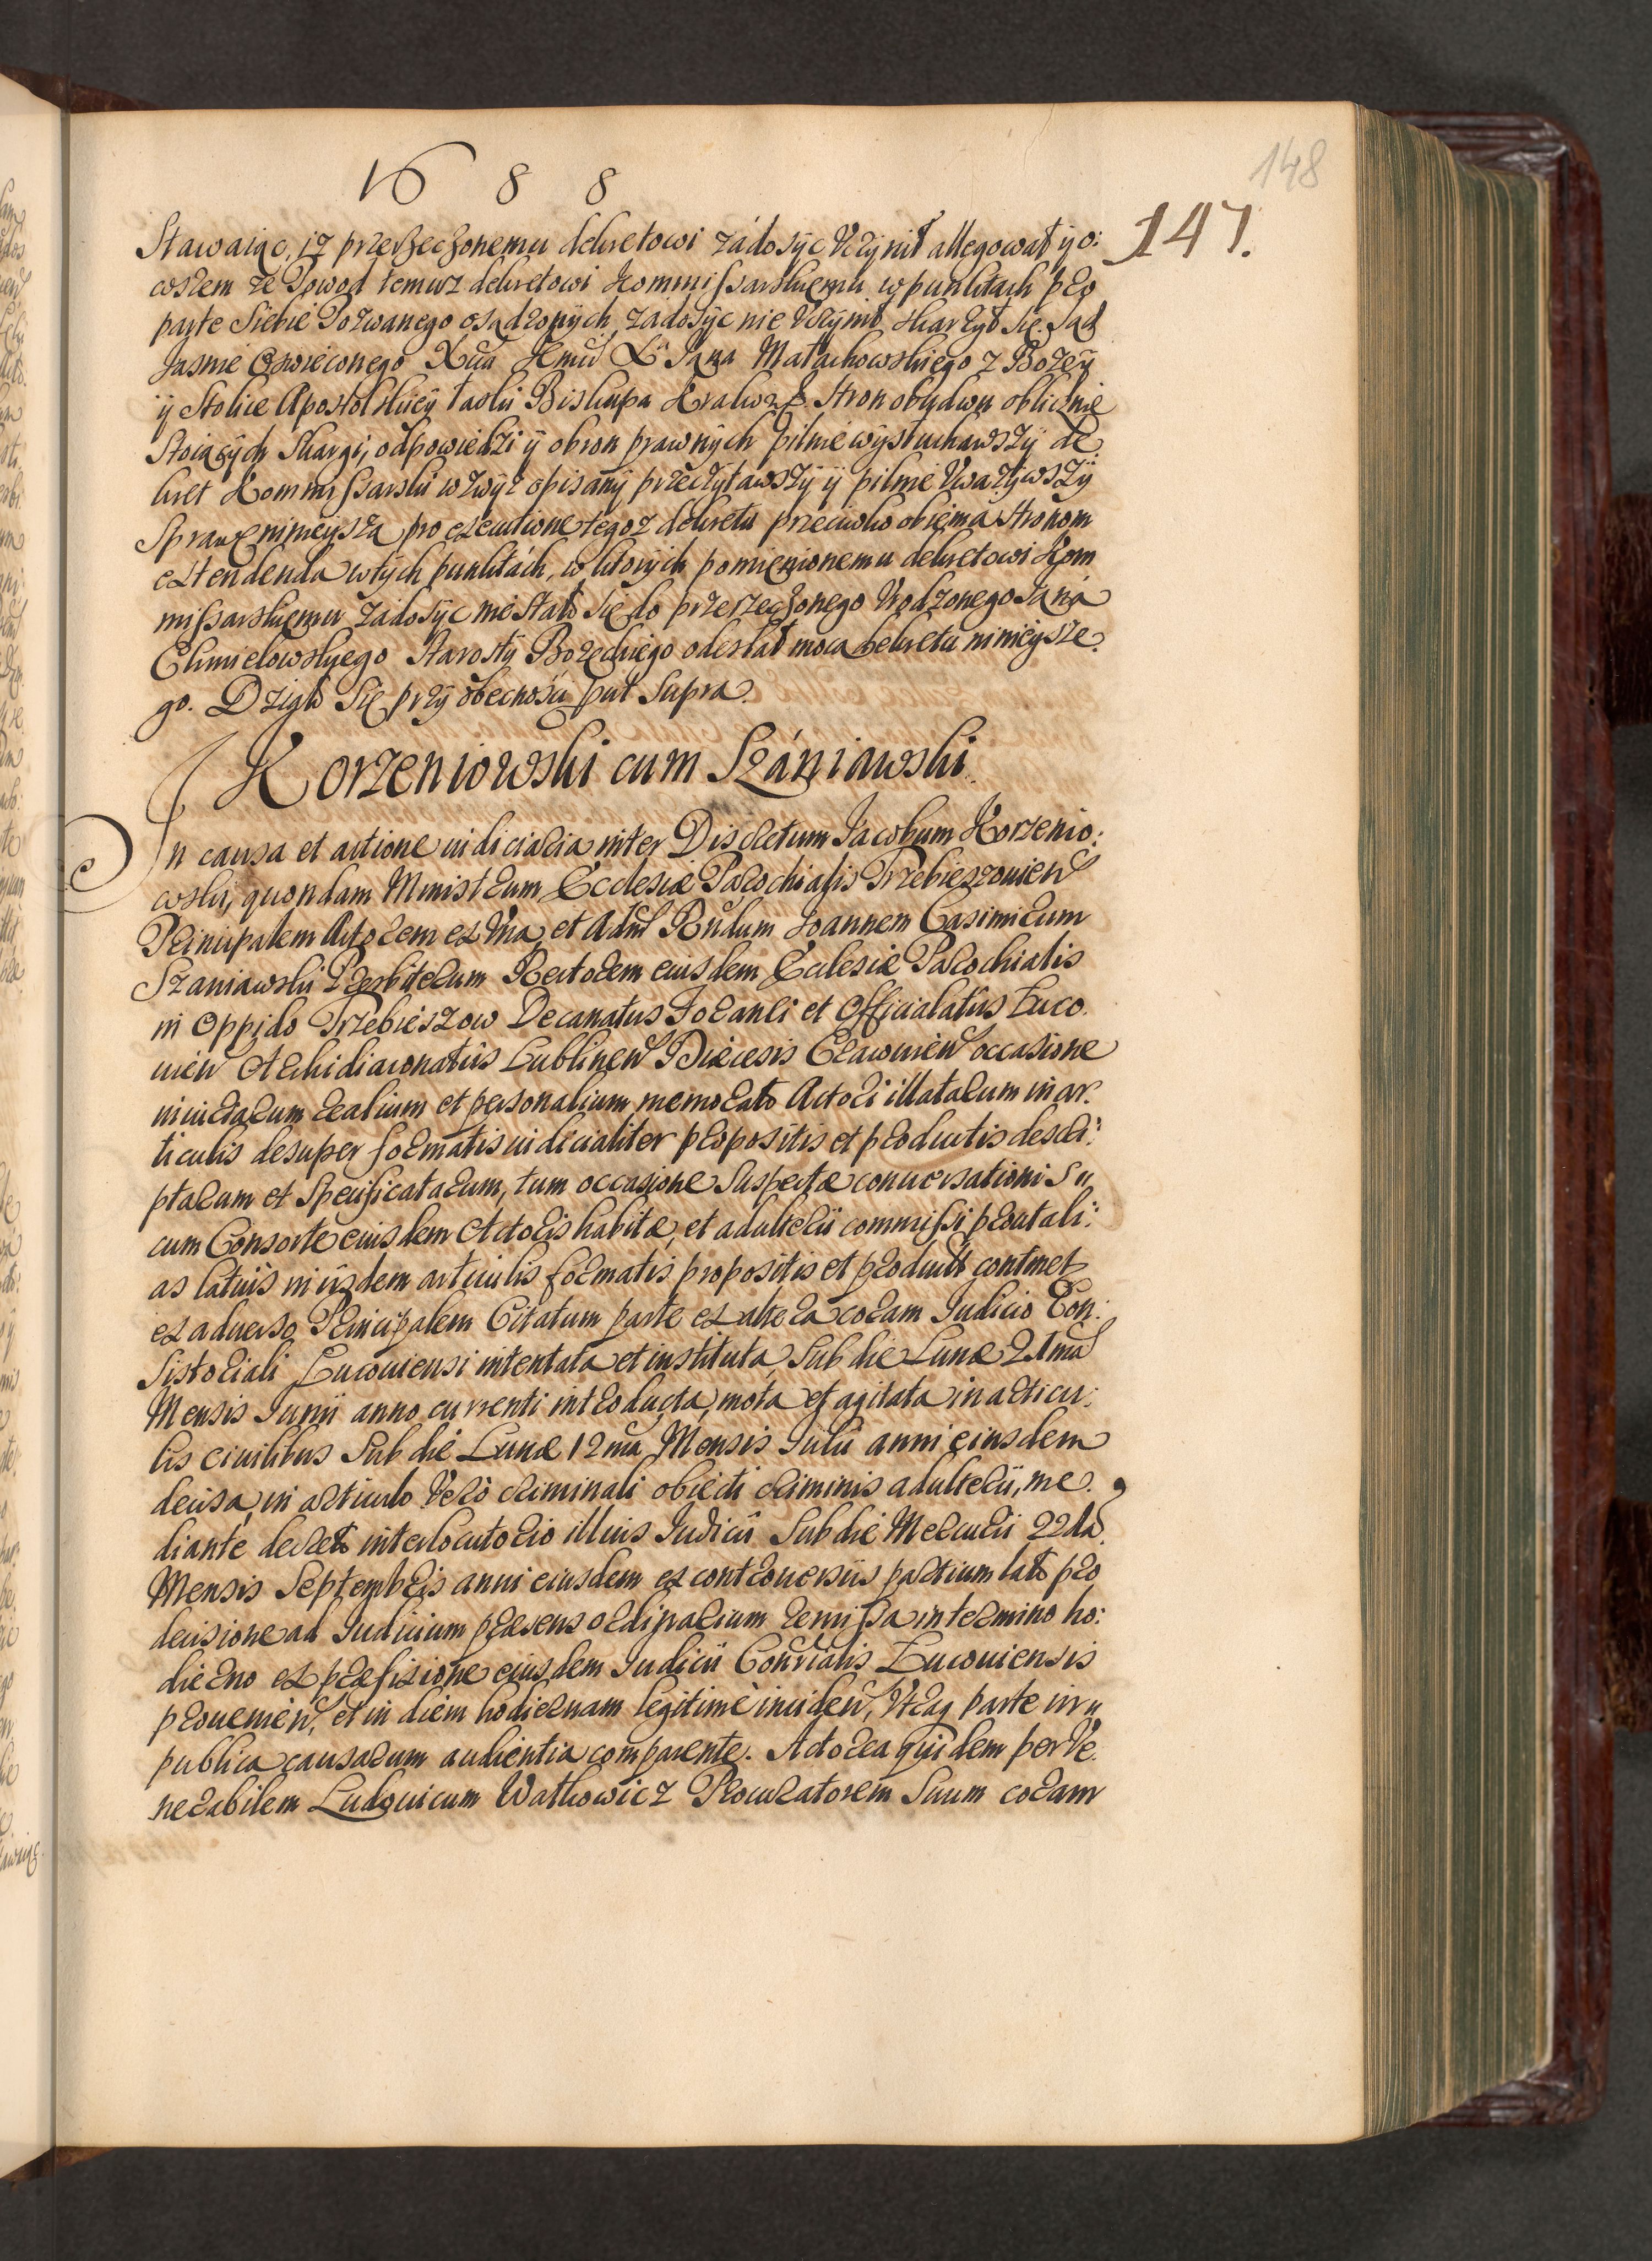 1688
148
147.
Stawaiąc, iż przerzeczonemu dekretowi zádosyc Uczynił allegował ÿ o:
wszem że Powod temusz dekretowi Kommissarskiemu w punktach pro
parte Siebie Pozwanego osądzonÿch, zadosÿc nie Uczynił skarżył się. Sąd
Jasnie Oswieconego Xcia Jmci X Jana Małachowskiego z Bożeÿ
ÿ Stolice Apostolskieÿ łaski Biskupa Krakow. Stron obudwu oblicznie
Stoiącÿch Skargi, odpowiedzi ÿ obron prawnÿch pilnie wÿsłuchawszÿ de
kret Kommissarski wzwÿż opisanÿ przeczÿtawszÿ ÿ pilnie Uwazÿwszÿ
Sprawę ninieysza pro executione tegoz dekretu przeciwko obiema Stronom
extendenda w tÿch punktách, w ktorÿch pomienionemu dekretowi Kom
missarskiemu zádosÿc nie stało się do przerzeczonego Urodzonego Jana
Chmielowskiego Starosty Bozęckiego odesłał moca dekretu ninieysze
go. Działo się przÿ obecnosci put Supra.
Korzeniowski cum Szániawski
In causa et actione iudiciaria inter Discretum Jacobum Korzenio:
wski, quondam Ministrum Ecclesiæ Parochialis Trzebieszovien
Principalem Actorem ex Una, et Adm Rndum Joannem Casimirum
Szaniawski Presbiterum Rectorem eiusdem Ecclesiæ Parochialis
in Oppido Trzebieszow Decanatus Foranei et Officialatûs Luco
vien Archidiaconatûs Lublinen Diæcesis Cracovien occasione
iniuriarum realium et personalium memorato Actori illatarum in ar
ticulis desuper formatis iudicialiter propositis et productis descri:
ptarum et Specificatarum, tum occasione Suspectæ conversationis
cum Consorte eiusdem Actoris habitæ, et adulterii commissi prout ali:
as latius in iisdem articulis formatis propositis et product continet
ex adverso Principalem Citatum parte ex altera coram Iudicio Con:
sistoriali Lucoviensi intentata et instituta, Sub die Lunæ 21ma
Mensis Junii anno currenti introducta, mota et agitata in articu:
lis civilibus Sub die Lunæ 12ma Mensis Julii anni eiusdem
decisa, in articulo Verò criminali obiecti criminis adulterii, me
diante decreto interlocutorio illius Iudicii Sub die Mercurii 22da
Mensis Septembris anni eiusdem ex controversiis partium lato pro
decisione ad Iudicium præsens ordinarium remissa in termino ho:
dierno ex præfixione eiusdem Iudicii Con͠rialis Lucoviensis
provenien, et in diem hodiernam legitimè inciden, Utraq parte in
publica causarum audientia comparente. Actorea quidem per Ve
nerabilem Ludovicum Watkowicz Procuratorem Suum coram